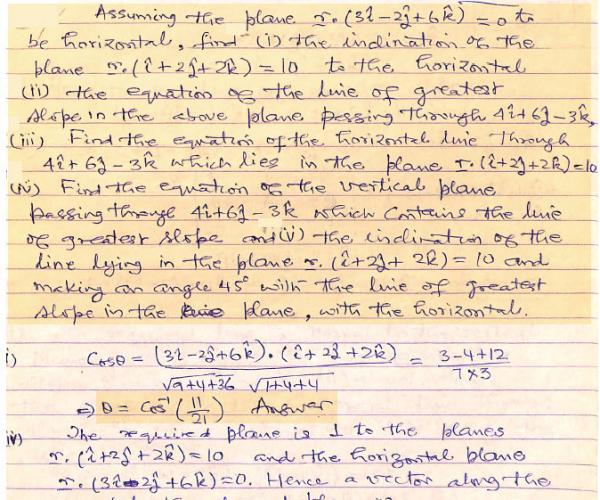 Assuming the plane r.(3î-2ĵ+6k̂) = 0 to
be horizontal, find (i) the inclination of the
plane r.(î+2ĵ+2k̂) = 10 to the horizontal
(ii) the equation of the line of greatest
slope in the above plane passing through 4î+6ĵ-3k̂,
(iii) Find the equation of the horizontal line through
4î+6ĵ-3k̂ which lies in the plane r.(î+2ĵ+2k̂)=10
(iv) Find the equation of the vertical plane
passing through 4î+6ĵ-3k̂ which contains the line
of greatest slope and (v) the inclination of the
line lying in the plane r.(î+2ĵ+2k̂) = 10 and
making an angle 45° with the line of greatest
slope in the plane, with the horizontal.
i) Cosθ = (3î-2ĵ+6k̂).(î+2ĵ+2k̂) / √9+4+36 √1+4+4 = 3-4+12 / 7×3
⇒ θ = Cos⁻¹(11/21) Answer
iv) The required plane is ⊥ to the planes
r.(î+2ĵ+2k̂) = 10 and the horizontal plane
r.(3î-2ĵ+6k̂)=0. Hence a vector along the